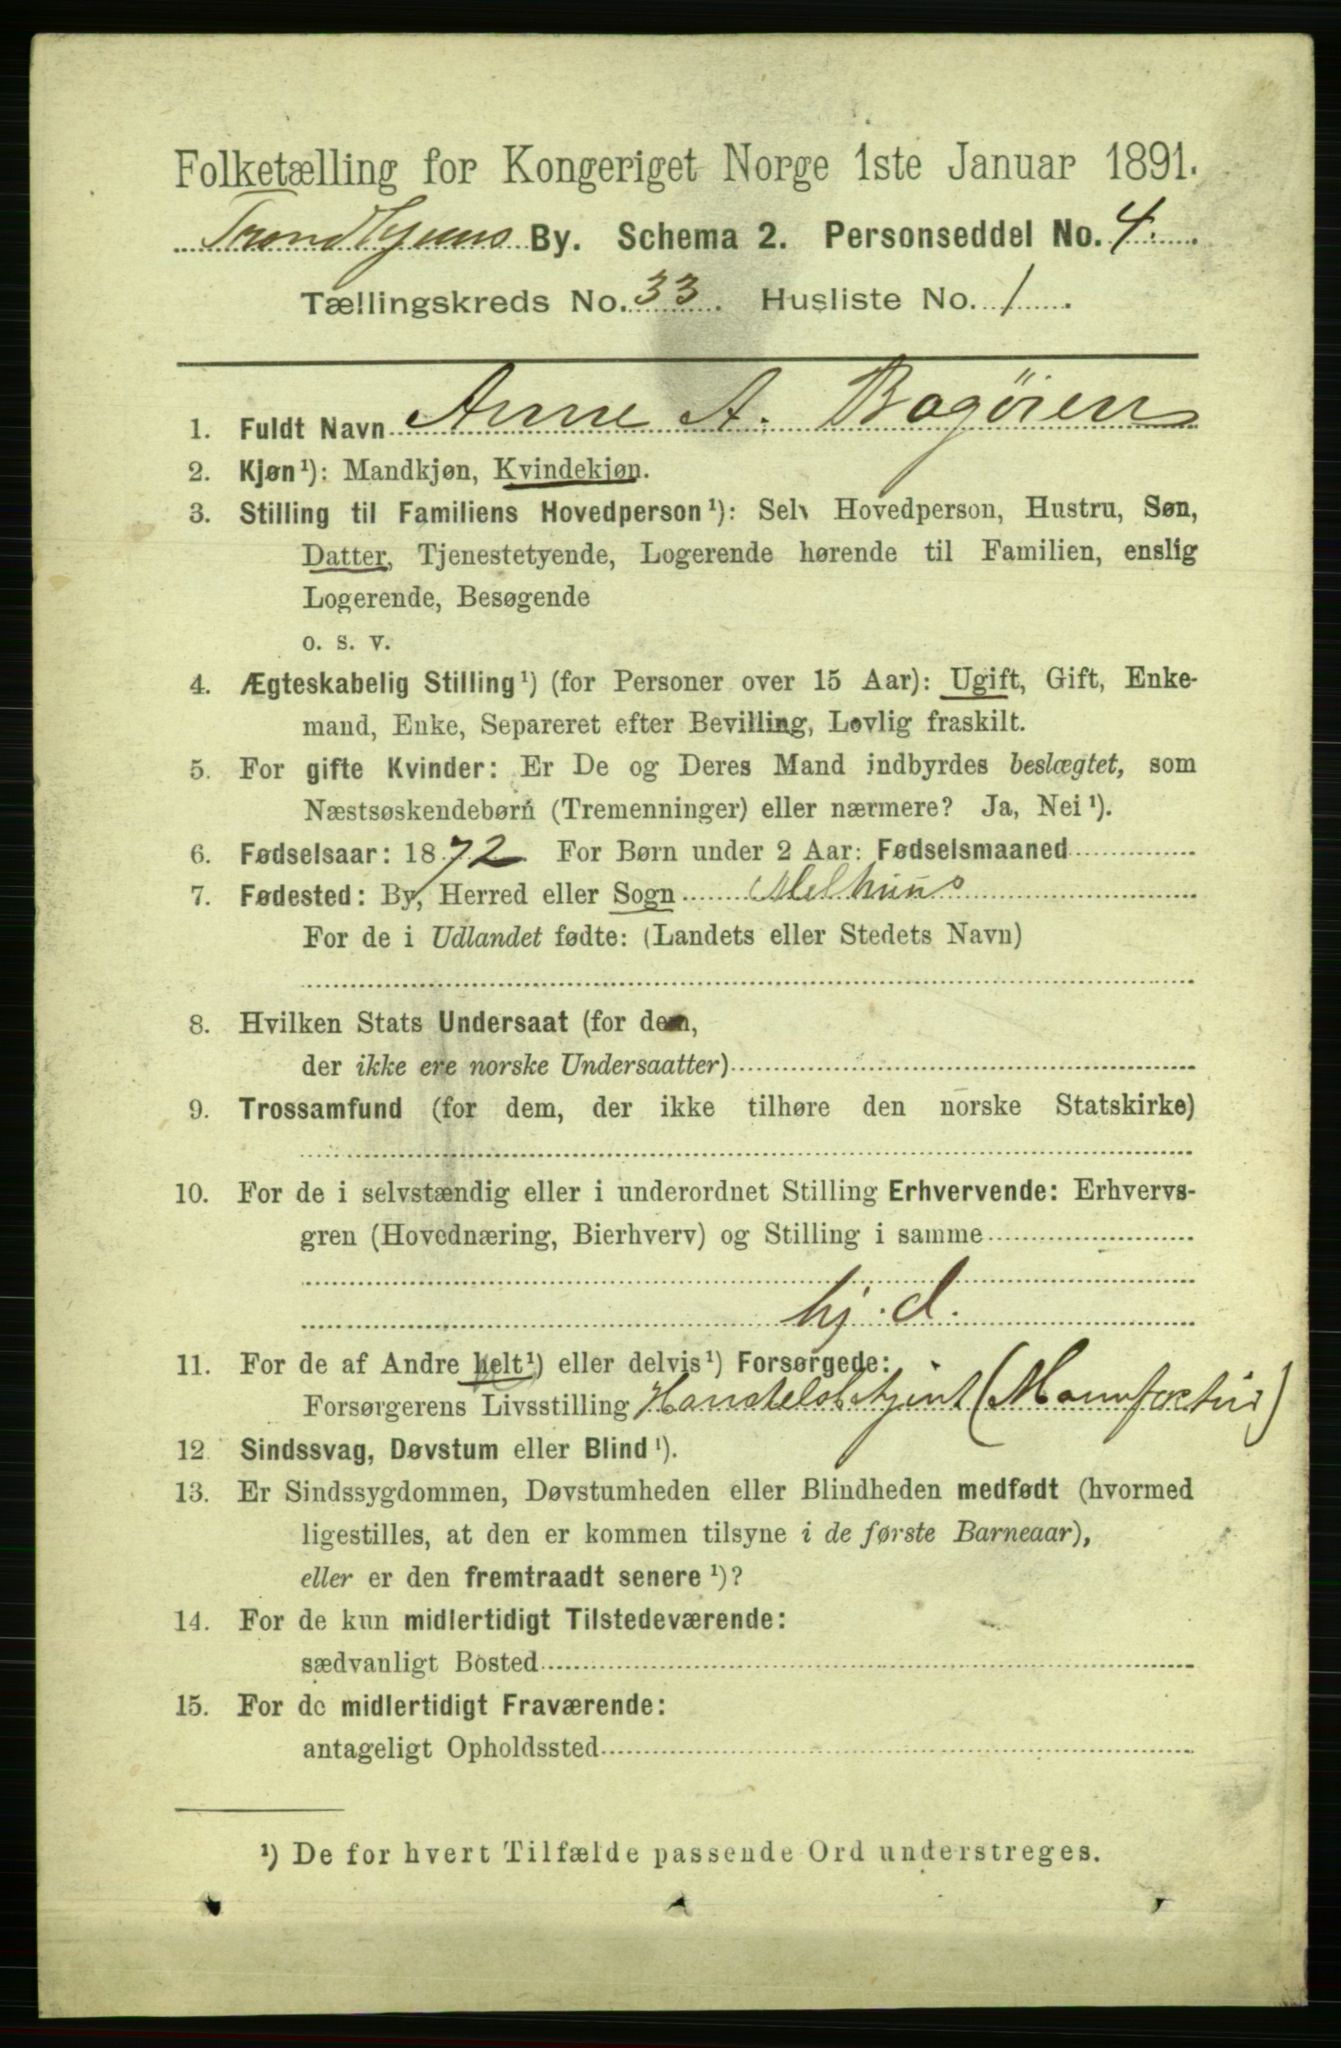 Folketælling for Kongeriget Norge 1ste Januar 1891.
Trondhjems By. Schema 2. Personseddel No. 4.
Tællingskreds No. 33. Husliste No. 1.
1. Fuldt Navn Anne A. Bogøien
2. Kjøn¹): Mandkjøn, Kvindekjøn.
3. Stilling til Familiens Hovedperson¹): Selv Hovedperson, Hustru, Søn,
Datter, Tjenestetyende, Logerende hørende til Familien, enslig
Logerende, Besøgende
o. s. v.
4. Ægteskabelig Stilling¹) (for Personer over 15 Aar): Ugift, Gift, Enke-
mand, Enke, Separeret efter Bevilling, Lovlig fraskilt.
5. For gifte Kvinder: Er De og Deres Mand indbyrdes beslægtet, som
Næstsøskendebørn (Tremenninger) eller nærmere? Ja, Nei¹).
6. Fødselsaar: 1872 For Børn under 2 Aar: Fødselsmaaned
7. Fødested: By, Herred eller Sogn Melhuus
For de i Udlandet fødte: (Landets eller Stedets Navn)
8. Hvilken Stats Undersaat (for dem,
der ikke ere norske Undersaatter)
9. Trossamfund (for dem, der ikke tilhøre den norske Statskirke)
10. For de i selvstændig eller i underordnet Stilling Erhvervende: Erhvervs-
gren (Hovednæring, Bierhverv) og Stilling i samme
hj. d.
11. For de af Andre helt¹) eller delvis¹) Forsørgede:
Forsørgerens Livsstilling Handelsbetjent (Manufactur)
12 Sindssvag, Døvstum eller Blind¹).
13. Er Sindssygdommen, Døvstumheden eller Blindheden medfødt (hvormed
ligestilles, at den er kommen tilsyne i de første Barneaar),
eller er den fremtraadt senere¹)?
14. For de kun midlertidigt Tilstedeværende:
sædvanligt Bosted
15. For de midlertidigt Fraværende:
antageligt Opholdssted
¹) De for hvert Tilfælde passende Ord understreges.